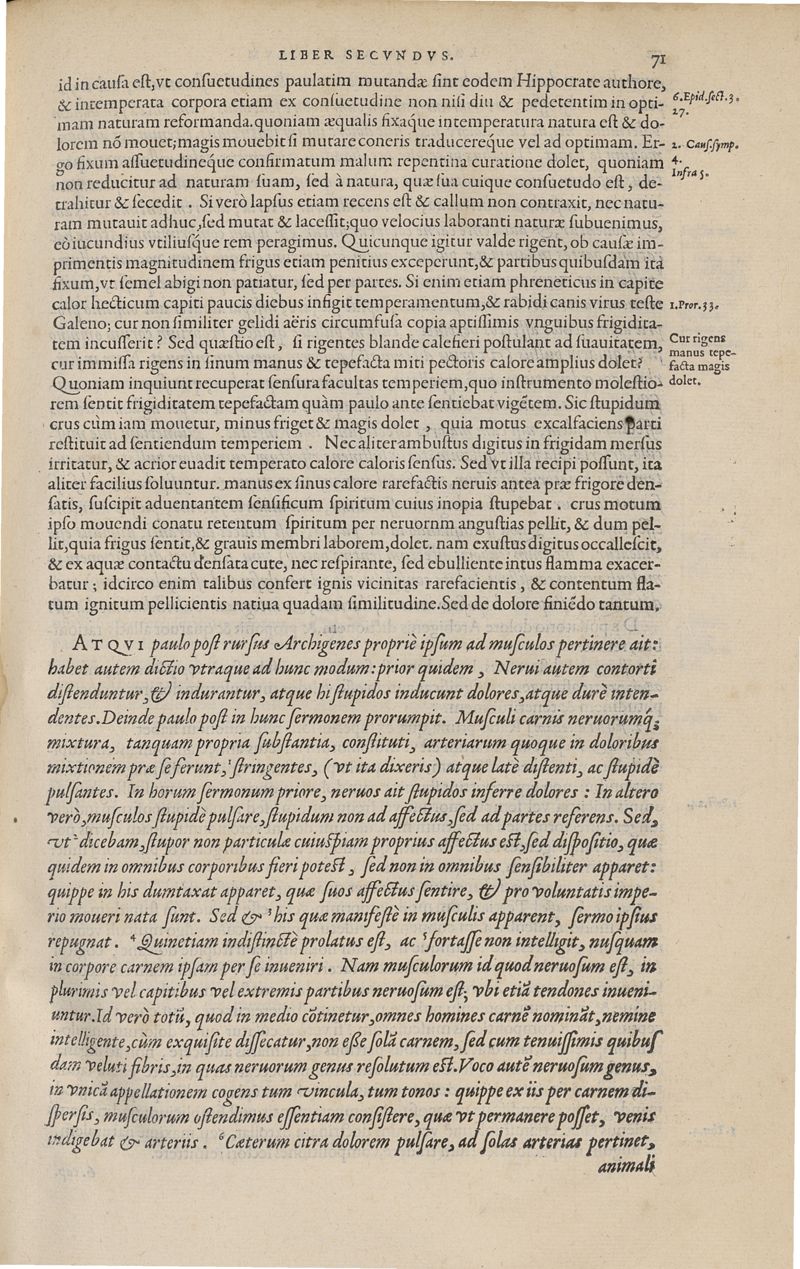 LIBER SECVNDVS. 71
id in cauſa eſt, vt conſuetudines paulatim mutandæ ſint eodem Hippocrate authore,
& intemperata corpora etiam ex conſuetudine non niſi diu & pedetentim in opti-
mam naturam reformanda. quoniam æqualis fixaque intemperatura natura eſt & do-
lorem nō mouet; magis mouebit ſi mutare coneris traducereque vel ad optimam. Er-
go fixum aſſuetudineque confirmatum malum repentina curatione dolet, quoniam
non reducitur ad naturam ſuam, ſed à natura, quæ ſua cuique conſuetudo eſt, de-
trahitur & ſecedit. Si verò lapſus etiam recens eſt & callum non contraxit, nec natu-
ram mutauit adhuc, ſed mutat & laceſſit; quo velocius laboranti naturæ ſubuenimus,
eò iucundius vtiliuſque rem peragimus. Quicunque igitur valde rigent, ob cauſæ im-
primentis magnitudinem frigus etiam penitius exceperunt, & partibus quibuſdam ita
fixum, vt ſemel abigi non patiatur, ſed per partes. Si enim etiam phreneticus in capite
calor hecticum capiti paucis diebus infigit temperamentum, & rabidi canis virus teſte
Galeno; cur non ſimiliter gelidi aëris circumfuſa copia aptiſſimis vnguibus frigidita-
tem incuſſerit? Sed quæſtio eſt, ſi rigentes blande calefieri poſtulant ad ſuauitatem,
cur immiſſa rigens in ſinum manus & tepefacta miti pectoris calore amplius dolet?
Quoniam inquiunt recuperat ſenſura facultas temperiem, quo inſtrumento moleſtio-
rem ſentit frigiditatem tepefactam quàm paulo ante ſentiebat vigētem. Sic ſtupidum
crus cùm iam mouetur, minus friget & magis dolet, quia motus excalfaciens parti
reſtituit ad ſentiendum temperiem. Nec aliter ambuſtus digitus in frigidam merſus
irritatur, & acrior euadit temperato calore caloris ſenſus. Sed vt illa recipi poſſunt, ita
aliter facilius ſoluuntur. manus ex ſinus calore rarefactis neruis antea præ frigore den-
ſatis, ſuſcipit aduentantem ſenſificum ſpiritum cuius inopia ſtupebat. crus motum
ipſo mouendi conatu retentum ſpiritum per neruornm anguſtias pellit, & dum pel-
lit, quia frigus ſentit, & grauis membri laborem, dolet. nam exuſtus digitus occalleſcit,
& ex aquæ contactu denſata cute, nec reſpirante, ſed ebulliente intus flamma exacer-
batur; idcirco enim talibus confert ignis vicinitas rarefacientis, & contentum fla-
tum ignitum pellicientis natiua quadam ſimilitudine. Sed de dolore finiēdo tantum.
6. Epid. ſect. 3.
27.
2. Cauſ. ſymp.
4.
Infra 5.
1. Pror. 33.
Cur rigens
manus tepe-
facta magis
dolet.
ATQVI paulo poſt rurſus Archigenes propriè ipſum ad muſculos pertinere ait:
habet autem dictio vtraque ad hunc modum: prior quidem, Nerui autem contorti
diſtenduntur, & indurantur, atque hi ſtupidos inducunt dolores, atque durè inten-
dentes. Deinde paulo poſt in hunc ſermonem prorumpit. Muſculi carnis neruorumq́;
mixtura, tanquam propria ſubſtantia, conſtituti, arteriarum quoque in doloribus
mixtionem præ ſe ferunt, ¹ſtringentes, (vt ita dixeris) atque latè diſtenti, ac ſtupidè
pulſantes. In horum ſermonum priore, neruos ait ſtupidos inferre dolores: In altero
verò, muſculos ſtupidè pulſare, ſtupidum non ad affectus, ſed ad partes referens. Sed,
vt ²dicebam, ſtupor non particulæ cuiuſpiam proprius affectus eſt, ſed diſpoſitio, quæ
quidem in omnibus corporibus fieri poteſt, ſed non in omnibus ſenſibiliter apparet:
quippe in his dumtaxat apparet, quæ ſuos affectus ſentire, & pro voluntatis impe-
rio moueri nata ſunt. Sed & ³his quæ manifeſtè in muſculis apparent, ſermo ipſius
repugnat. ⁴Quinetiam indiſtinctè prolatus eſt, ac ⁵fortaſſe non intelligit, nuſquam
in corpore carnem ipſam per ſe inueniri. Nam muſculorum id quod neruoſum eſt, in
plurimis vel capitibus vel extremis partibus neruoſum eſt; vbi etiā tendones inueni-
untur. Id verò totū, quod in medio cōtinetur, omnes homines carnē nomināt, nemine
intelligente, cùm exquiſite diſſecatur, non eſſe ſolā carnem, ſed cum tenuiſſimis quibuſ
dam veluti fibris, in quas neruorum genus reſolutum eſt. Voco autē neruoſum genus,
in vnicā appellationem cogens tum vincula, tum tonos: quippe ex iis per carnem di-
ſperſis, muſculorum oſtendimus eſſentiam conſiſtere, quæ vt permanere poſſet, venis
indigebat & arteriis. ⁶Cæterum citra dolorem pulſare, ad ſolas arterias pertinet,
animali